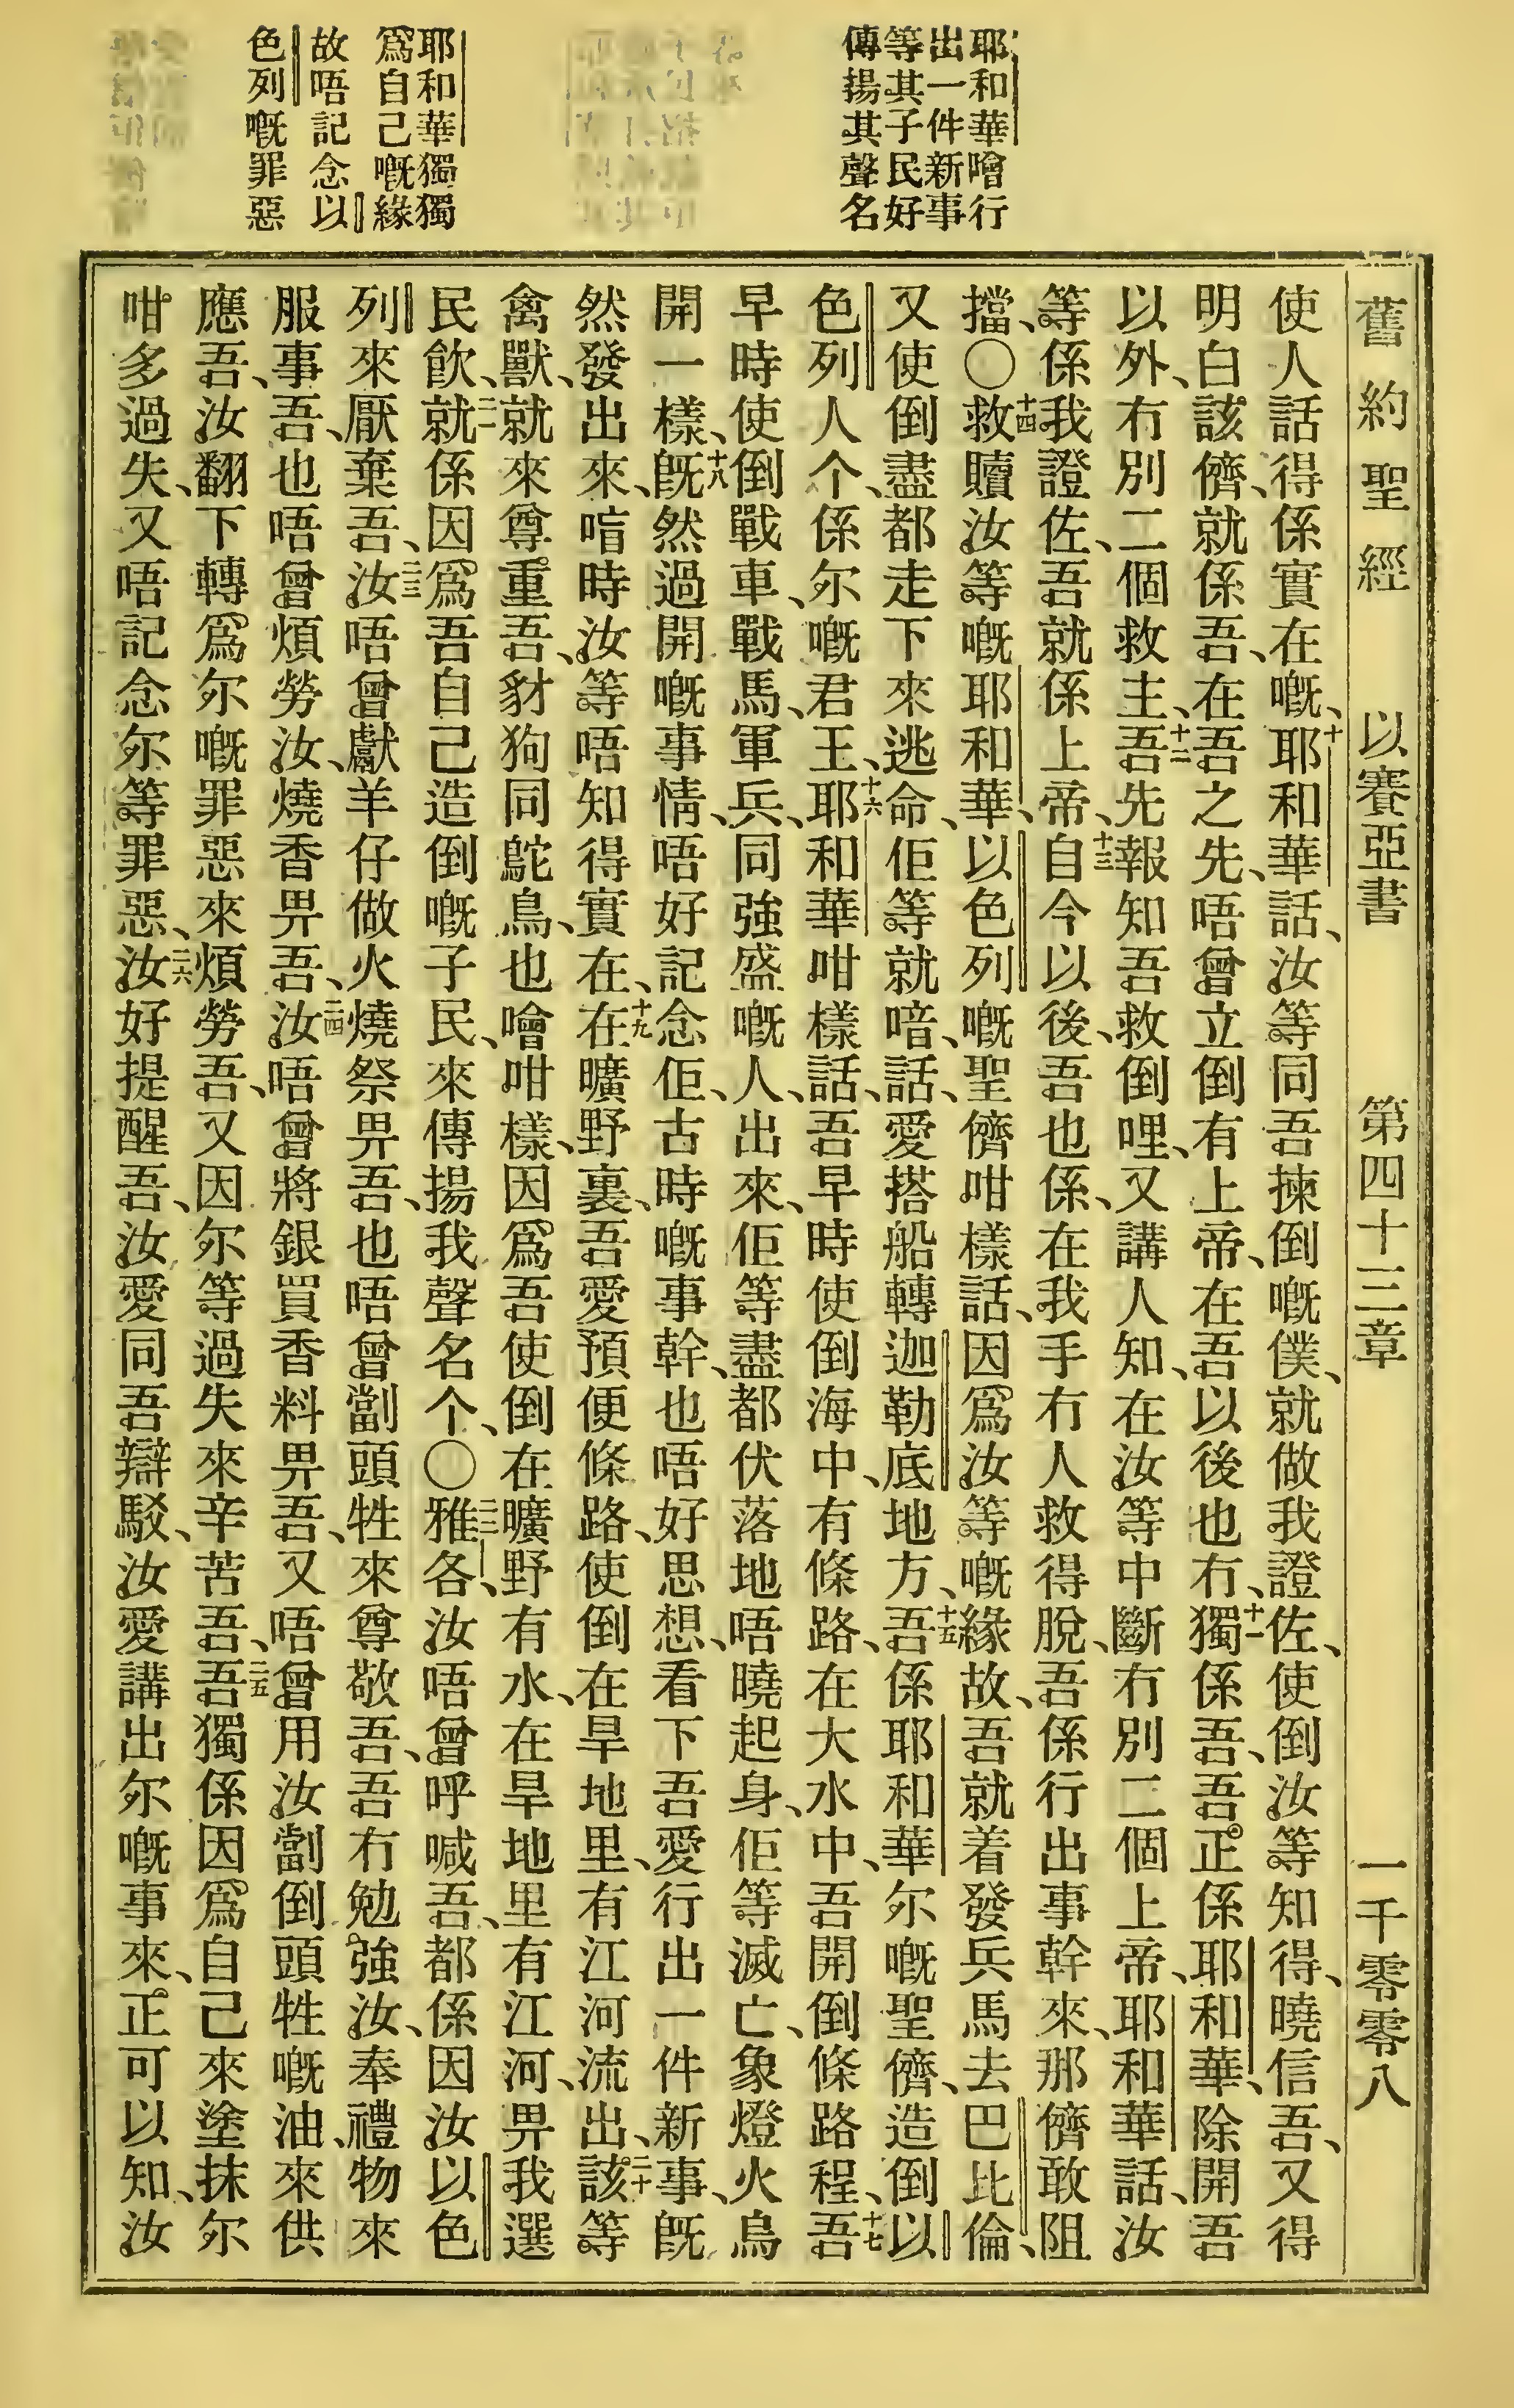 舊約聖經 以賽亞書 第四十三章 一千零零八
耶和華噲行
出一件新事
等其子民好
傳揚其聲名
耶和華獨獨
爲自己嘅緣
故唔記念以
色列嘅罪惡
使人話得係實在嘅、十耶和華話、汝等同吾揀倒嘅僕、就做我證佐、使倒汝等知得、曉信吾、又得
明白該儕、就係吾、在吾之先、唔曾立倒有上帝、在吾以後也冇、十一獨係吾、吾正係耶和華、除開吾
以外、冇別二個救主、十二吾先報知吾救倒哩、又講人知、在汝等中斷冇別二個上帝、耶和華話、汝
等係我證佐、吾就係上帝、十三自今以後、吾也係、在我手冇人救得脫、吾係行出事幹來、那儕敢阻
擋、〇十四救贖汝等嘅耶和華、以色列嘅聖儕咁樣話、因爲汝等嘅緣故、吾就着發兵馬去巴比倫、
又使倒盡都走下來逃命、佢等就喑、話、愛搭船轉迦勒底地方、十五吾係耶和華尔嘅聖儕、造倒以
色列人个、係尔嘅君王、十六耶和華咁樣話、吾早時使倒海中、有條路、在大水中、吾開倒條路程、十七吾
早時使倒戰車、戰馬、軍兵、同強盛嘅人、出來、佢等盡都伏落地唔曉起身、佢等滅亡、象燈火烏
開一樣、十八旣然過開嘅事情、唔好記念佢、古時嘅事幹、也唔好思想、看下吾愛行出一件新事、旣
然發出來、喑時汝等唔知得實在、十九在曠野裏、吾愛預便條路、使倒在旱地里、有江河流出、二十該等
禽獸、就來尊重吾、豺狗同鴕鳥、也噲咁樣、因爲吾使倒在曠野有水、在旱地里有江河、畀我選
民飲、二一就係因爲吾自己造倒嘅子民、來傳揚我聲名个、〇二二雅各、汝唔曾呼喊吾、都係因汝以色
列來厭棄吾、二三汝唔曾獻羊仔做火燒祭畀吾、也唔曾劏頭牲來尊敬吾、吾冇勉強汝、奉禮物來
服事吾、也唔曾煩勞汝、燒香畀吾、二四汝唔曾將銀買香料畀吾、又唔曾用汝劏倒頭牲嘅油、來供
應吾、汝翻下轉爲尔嘅罪惡來煩勞吾、又因尔等過失來辛苦吾、二五吾獨係因爲自己來塗抹尔
咁多過失、又唔記念尔等罪惡、二六汝好提醒吾、汝愛同吾辯駁、汝愛講出尔嘅事來、正可以知、汝